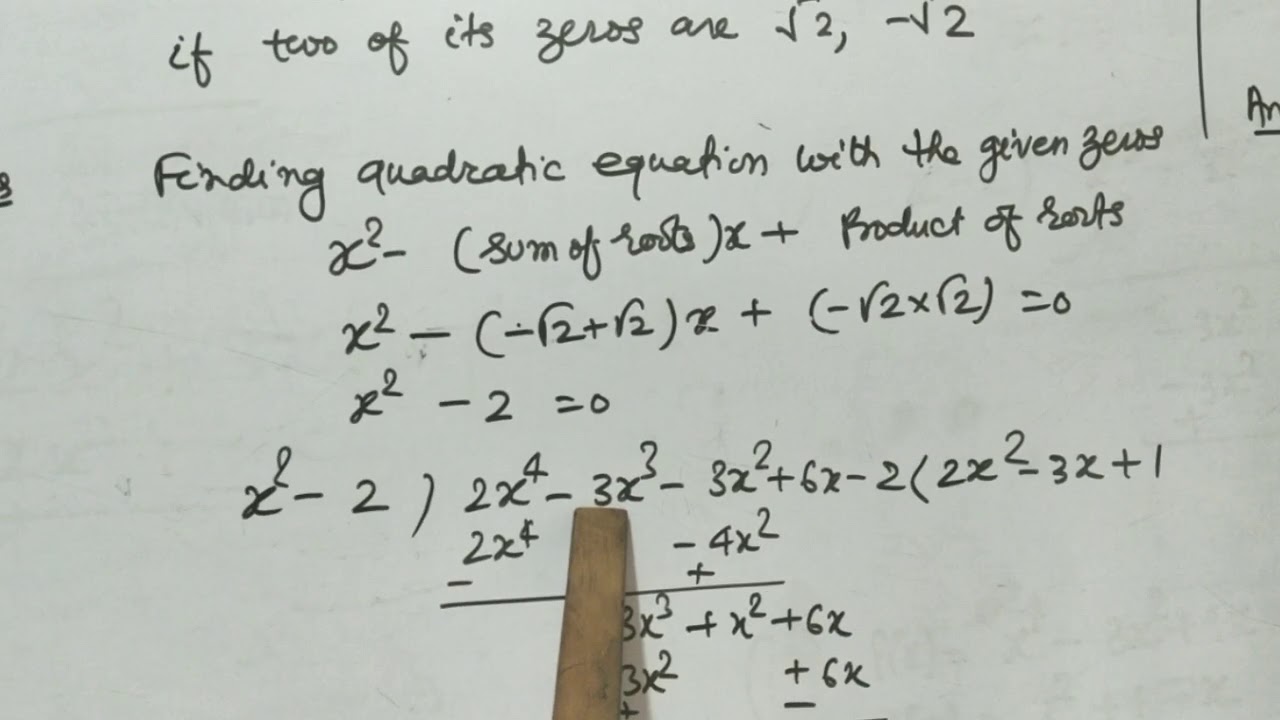 if two of its zeros are √2, -√2
An
Finding quadratic equation with the given zeros
x² - (sum of roots)x + Product of roots
x² - (-√2+√2)x + (-√2×√2) =0
x² - 2 =0
x² - 2 ) 2x⁴ - 3x³ - 3x² + 6x - 2 ( 2x² - 3x + 1
2x⁴ - 4x²
- +
3x³ + x² + 6x
3x² + 6x
+ -